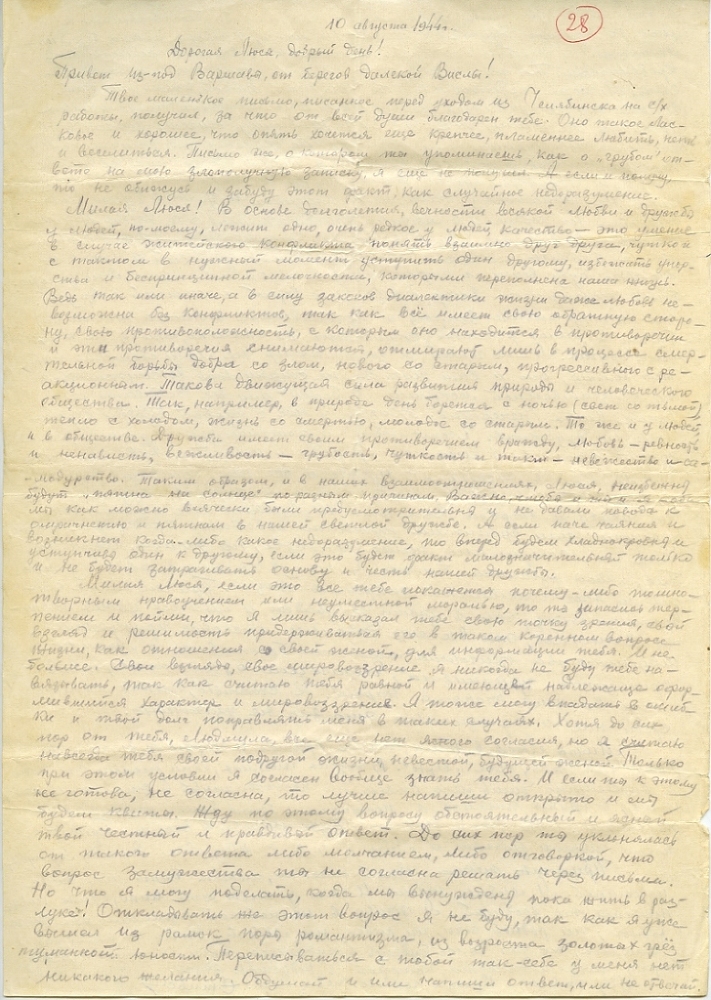 10 августа 1944г.
28
Дорогая Люся, добрый день!
Привет из-под Варшавы, от берегов далекой Вислы!
Твое маленькое письмо, писанное перед уходом из Челябинска на с/х
работы, получил, за что от всей души благодарен тебе. Оно такое лас-
ковое и хорошее, что опять хочется еще крепче, пламеннее любить, петь
и веселиться. Письмо же, о котором ты упоминаешь, как о „грубом“ от-
вете на мою злополучную записку, я еще не получил. А если и получу,
то не обижусь и забуду этот факт, как случайное недоразумение.
Милая Люся! В основе долголетия, вечности всякой любви и дружбы
у людей, по-моему, лежит одно, очень редкое у людей качество – это умение
в случае житейского конфликта понять взаимно друг друга, чутко и
с тактом в нужный момент уступить один другому, избежать упор-
ства и беспринципной мелочности, которыми переполнена наша жизнь.
Ведь так или иначе, а в силу законов диалектики жизни даже любовь не-
возможна без конфликтов, так как всё имеет свою обратную сторо-
ну, свою противоположность, с которым оно находится в противоречии
и эти противоречия снимаются, отмирают лишь в процессе смер-
тельной борьбы добра со злом, нового со старым, прогрессивного с ре-
акционным. Такова движущая сила развития природы и человеческого
общества. Так, например, в природе день борется с ночью (свет со тьмой)
тепло с холодом, жизнь со смертью, молодое со старым. То же и у людей
и в обществе. Дружба имеет своим противоречием вражду, любовь – ревность
и ненависть, вежливость – грубость, чуткость и такт – невежество и са-
модурство. Таким образом, и в наших взаимоотношениях, Люся, неизбежно
будут „пятна на солнце“ по разным причинам. Важно, чтобы и
мы как можно всячески были предусмотрительны и не давали повода к
омрачению и пятнам в нашей светлой дружбе. А если паче чаяния и
возникнет когда-либо какое недоразумение, то вперед будем хладнокровны и
уступчивы один к другому, если это будет факт малозначительный только
и не будет затрагивать основу и честь нашей дружбы.
Милая Люся, если это все тебе покажется почему-либо
нравоучением или неуместной моралью, то ты запасись тер-
пением и пойми, что я лишь высказал тебе свою точку зрения, свой
взгляд и решимость придерживаться его в таком коренном вопросе
жизни, как отношения со своей женой, для информации тебя. И не
больше. Свои взгляды, свое мировоззрение я никогда не буду тебе на-
вязывать, так как считаю тебя равной и имеющей надлежаще офор-
мившийся характер и мировоззрение. Я тоже могу впадать в ошиб-
ки и твой долг поправлять меня в таких случаях. Хотя до сих
пор от тебя, Людмила, все еще нет ясного согласия, но я считаю
навсегда тебя своей подругой жизни, невестой, будущей женой. Только
при этом условии я согласен вообще знать тебя. И если ты к этому
не готова, не согласна, то лучше напиши открыто и мы
будем квиты. Жду по этому вопросу обстоятельный и ясный
твой честный и правдивый ответ. До сих пор ты уклонялась
от такого ответа либо молчанием, либо отговоркой, что
вопрос замужества ты не согласна решать через письма.
Но что я могу поделать, когда мы вынуждены пока жить в раз-
луке! Откладывать же этот вопрос я не буду, так как я уже
вышел из рамок поры романтизма, из возраста золотых грёз
туманной юности. Переписываться с тобой так-себе у меня нет
никакого желания. Обдумай и или напиши ответ, или не отвечай.